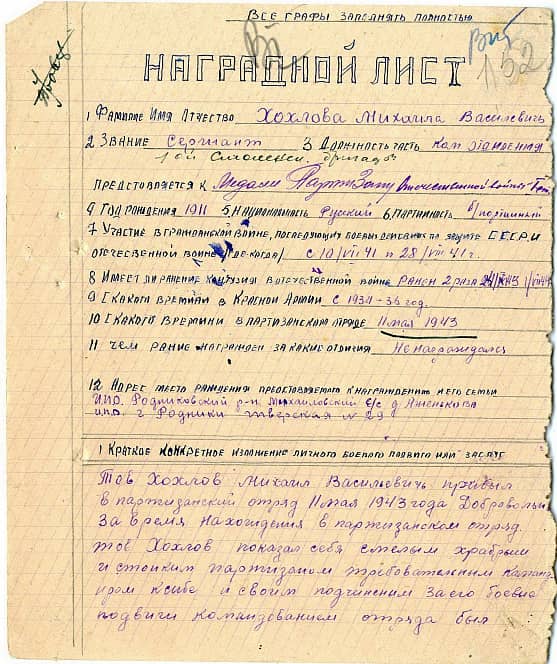 ВСЕ ГРАФЫ ЗАПОЛНЯТЬ ПОЛНОСТЬЮ
152
НАГРАДНОЙ ЛИСТ
1 ФАМИЛИЕ ИМЯ ОТЧЕСТВО Хохлова Михаила Васильевичь
2 ЗВАНИЕ Сержант 3 ДОЛЖНОСТЬ ЧАСТЬ Ком отделения
1ой Смоленск. бригады
ПРЕДСТОВЛЯЕТСЯ К Медали Партизану Отечественной войны
4 ГОД РАЖДЕНИЯ 1911 5 НАЦИОНАЛЬНОСТЬ Руский 6 ПАРТИЙНОСТЬ б/портийный
7 УЧАСТИЕ В ГРАЖДАНСКОЙ ВОЙНЕ, ПОСЛЕДУЮЩИХ БОЕВЫХ ДЕЙСТВИЯХ ПО ЗАЩИТЕ СССР И
ОТЕЧЕСТВЕНОЙ ВОЙНЕ (ГДЕ КОГДА) с 10/VII 41 п 28/VIII 41 г.
8 ИМЕЕТ ЛИ РАНЕНИЕ КОНТУЗИЯ В ОТЕЧЕСТВЕНОЙ ВОЙНЕ РАНЕН 2 раза
9 С КАКОГО ВРЕМЕНИ В КРАСНОЙ АРМИИ с 1934-36 год.
10 С КАКОГО ВРЕМИНИ В ПАРТИЗАНСКОМ ОТРЯДЕ 11 мая 1943
11 ЧЕМ РАНИЕ НАГРАЖДЕН ЗА КАКИЕ ОТЛИЧИЯ Не награждался
12 АДРЕС МЕСТО РАЖДЕНИЯ ПРЕДСТОВЛЯЕМОГО К НАГРАЖДЕНИЮ И ЕГО СЕМЬИ
И.П.О. Родниковский р-н Михайловский С/с д
И.П.О. г Родники тверская № 29
1 КРАТКОЕ КОНКРЕТНОЕ ИЗЛОЖЕНИЕ ЛИЧНОГО БОЕВОГО ПОДВИГА ИЛИ ЗАСЛУГ
Тов Хохлов Михаил Васильевичь прибыл
в партизанский отряд 11 мая 1943 года Добровольн
За время нахождения в партизанском отряд.
тов Хохлов показал себя смелым храбрым
и стойким партизаном требовательным команд
иром к себе и своим подчиненим За его боевые
подвиги командованием отряда был